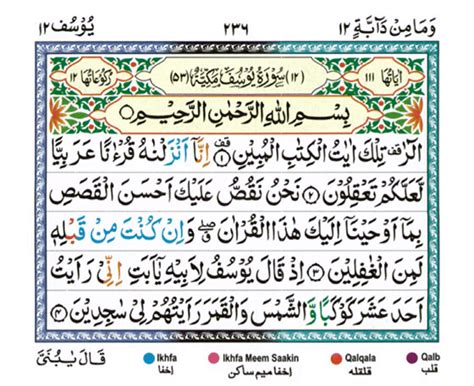 وَمَا مِنْ دَآبَّةٍ ١٢ ٢٣٦ يُوْسُف ١٢
اٰيَاتُهَا ١١١ (١٢) سُوْرَةُ يُوْسُفَ مَكِّيَّةٌ (٥٣) رُكُوْعَاتُهَا ١٢
بِسْمِ اللّٰهِ الرَّحْمٰنِ الرَّحِيْمِ
الٓرٰ ۗ تِلْكَ اٰيٰتُ الْكِتٰبِ الْمُبِيْنِ ۟ ١ اِنَّاۤ اَنْزَلْنٰهُ قُرْءٰنًا عَرَبِيًّا
لَّعَلَّكُمْ تَعْقِلُوْنَ ٢ نَحْنُ نَقُصُّ عَلَيْكَ اَحْسَنَ الْقَصَصِ
بِمَاۤ اَوْحَيْنَاۤ اِلَيْكَ هٰذَا الْقُرْاٰنَ ۖ وَاِنْ كُنْتَ مِنْ قَبْلِهٖ
لَمِنَ الْغٰفِلِيْنَ ٣ اِذْ قَالَ يُوْسُفُ لِاَبِيْهِ يٰۤاَبَتِ اِنِّيْ رَاَيْتُ
اَحَدَ عَشَرَ كَوْكَبًا وَّالشَّمْسَ وَالْقَمَرَ رَاَيْتُهُمْ لِيْ سٰجِدِيْنَ ٤
Ikhfa Ikhfa Meem Saakin Qalqala Qalb
قَالَ يٰبُنَيَّ اخفا اخفا میم ساکن قلقله قلب